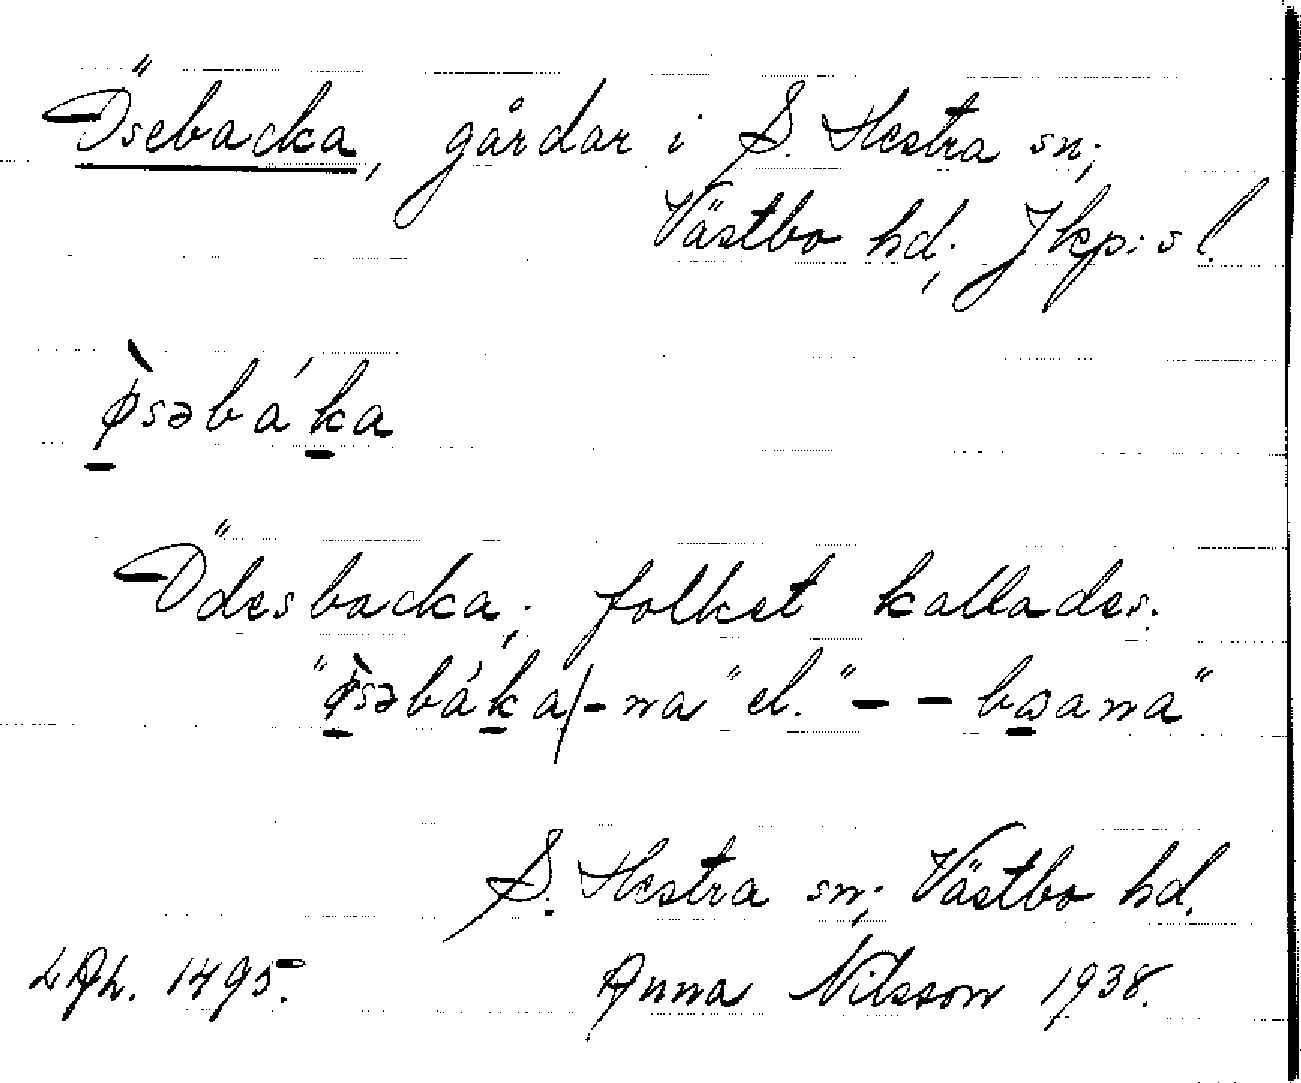 Ösebacka, gårdar i S. Hestra sn;
Västbo hd; Jkp:s l.
ø̀səbáka
Ödesbacka; folket kallades:
"ø̀səbáka/-na" el. "– – bɷana"
S. Hestra sn; Västbo hd.
LAL. 1495. Anna Nilsson 1938.